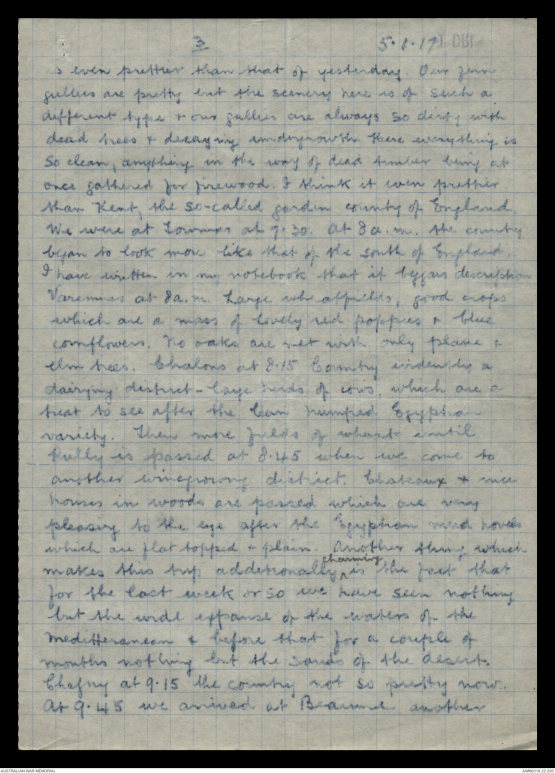 3
5.1.17
is even prettier than that of yesterday. Our fern
gullies are pretty but the scenery here is of such a
different type & our gullies are always so dirty with
dead trees & decaying undergrowth. Here everything is
so clean, anything in the way of dead timber being at
once gathered for firewood. I think it even prettier
than Kent, the so-called garden county of England.
We were at at 7.30. At 8 a.m. the country
began to look more like that of the South of England.
I have written in my notebook that it beggars description
Varennes at 8 a.m. Large wheatfields, good crops
which are a mass of lovely red poppies & blue
cornflowers. No oaks are met with only plane &
elm trees. Chalons at 8.15 Country evidently a
dairying district - large herds of cows, which are a
treat to see after the lean humped Egyptian
variety. Then more fields of wheat until
Rully is passed at 8.45 when we come to
another winegrowing district. Chateaux & nice
houses in woods are passed which are very
pleasing to the eye after the Egyptian mud hovels
which are flat topped & plain. Another thing which
makes this trip additionally charming is the fact that
for the last week or so we have seen nothing
but the wide expanse of the waters of the
Mediterranean & before that for a couple of
months nothing but the sands of the desert.
Chagny at 9.15 the country not so pretty now.
At 9.45 we arrived at Beaune another
AUSTRALIAN WAR MEMORIAL